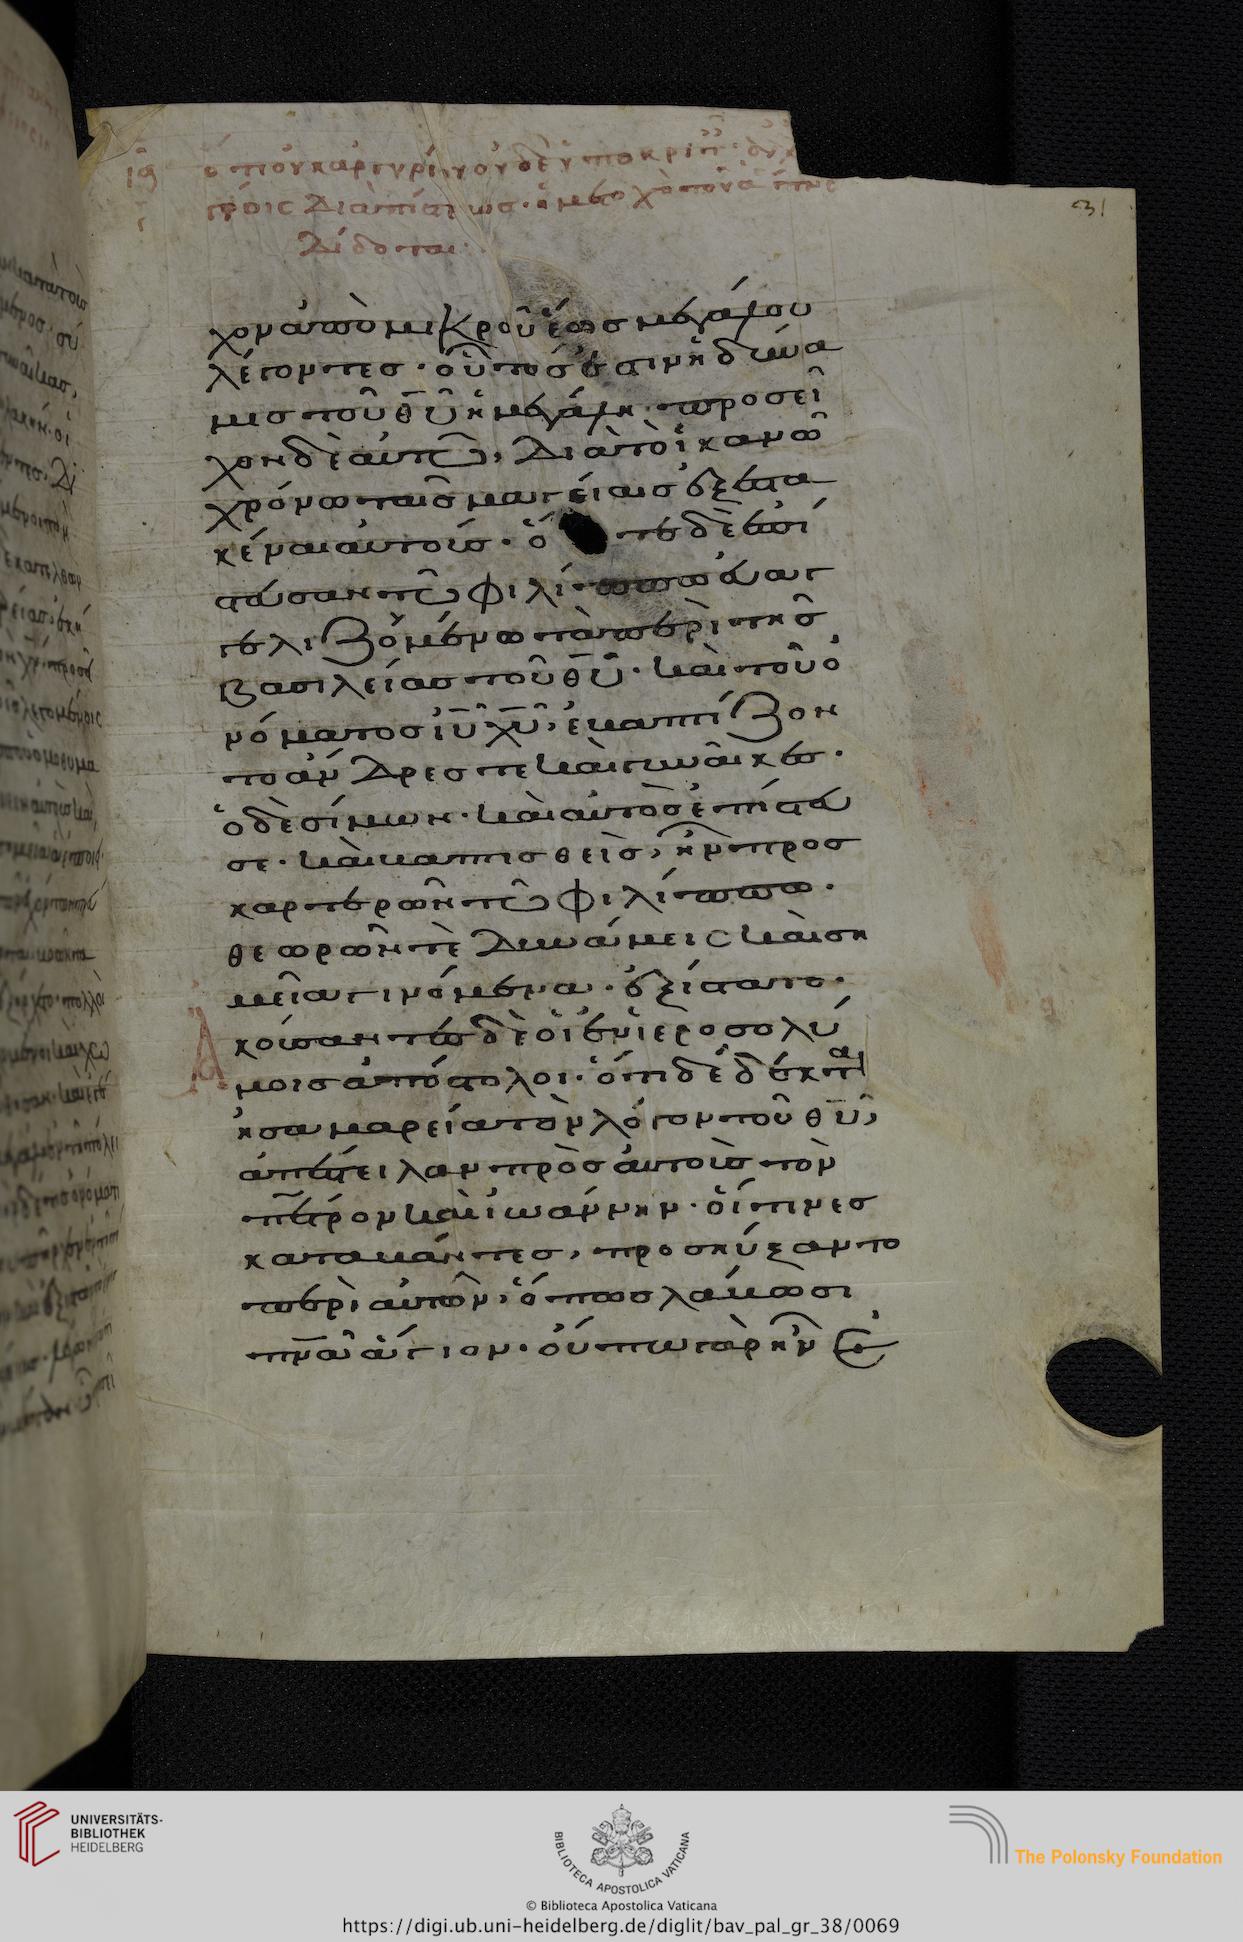 31
ὅτι οὐκ ἀργυρίου οὐδὲ ὑποκρι
Δίδοται
χον ἀπὸ μικροῦ ἕως μεγάλου
λέγοντες · οὗτός ἐστιν ἡ δύνα
μις τοῦ θῦ ἡ μεγάλη · προσεῖ
χον δὲ αὐτῶ, Διὰ τὸ ἱκανῶ
χρόνω ταῖς μαγείαις ἐξεστα
κέναι αὐτούς · ὅ τε δὲ ἐπί
στευσαν τῶ Φιλίππω εὐαγ
γελιζομένω τὰ περὶ τῆς
βασιλείας τοῦ θῦ · καὶ τοῦ ὀ
νόματος ἰῦ χῦ, ἐβαπτίζον
το ἄνδρες τε καὶ γυναῖκες ·
ὁ δὲ σίμων · καὶ αὐτὸς ἐπίστευ
σε · καὶ βαπτισθεὶς, ἦν προσ
καρτερῶν τῶ Φιλίππω ·
θεωρῶν τὲ Δυνάμεις καὶ ση
μεῖα γινόμενα · ἐξίστατο ·
Ἀκούσαντες δὲ οἱ ἐν ἱεροσολύ
μοις ἀπόστολοι · ὅτι δέδεκται
ἡ σαμαρεία τὸν λόγον τοῦ θῦ,
ἀπέστειλαν πρὸς αὐτοὺς τὸν
πέτρον καὶ ἰωάννην · οἵτινες
καταβάντες, προσηύξαντο
περὶ αὐτῶν, ὅπως λάβωσι
πνᾶ ἅγιον · οὔπω γὰρ ἦν ἐ
UNIVERSITÄTS-
BIBLIOTHEK
HEIDELBERG
BIBLIOTECA APOSTOLICA VATICANA
The Polonsky Foundation
© Biblioteca Apostolica Vaticana
https://digi.ub.uni-heidelberg.de/diglit/bav_pal_gr_38/0069